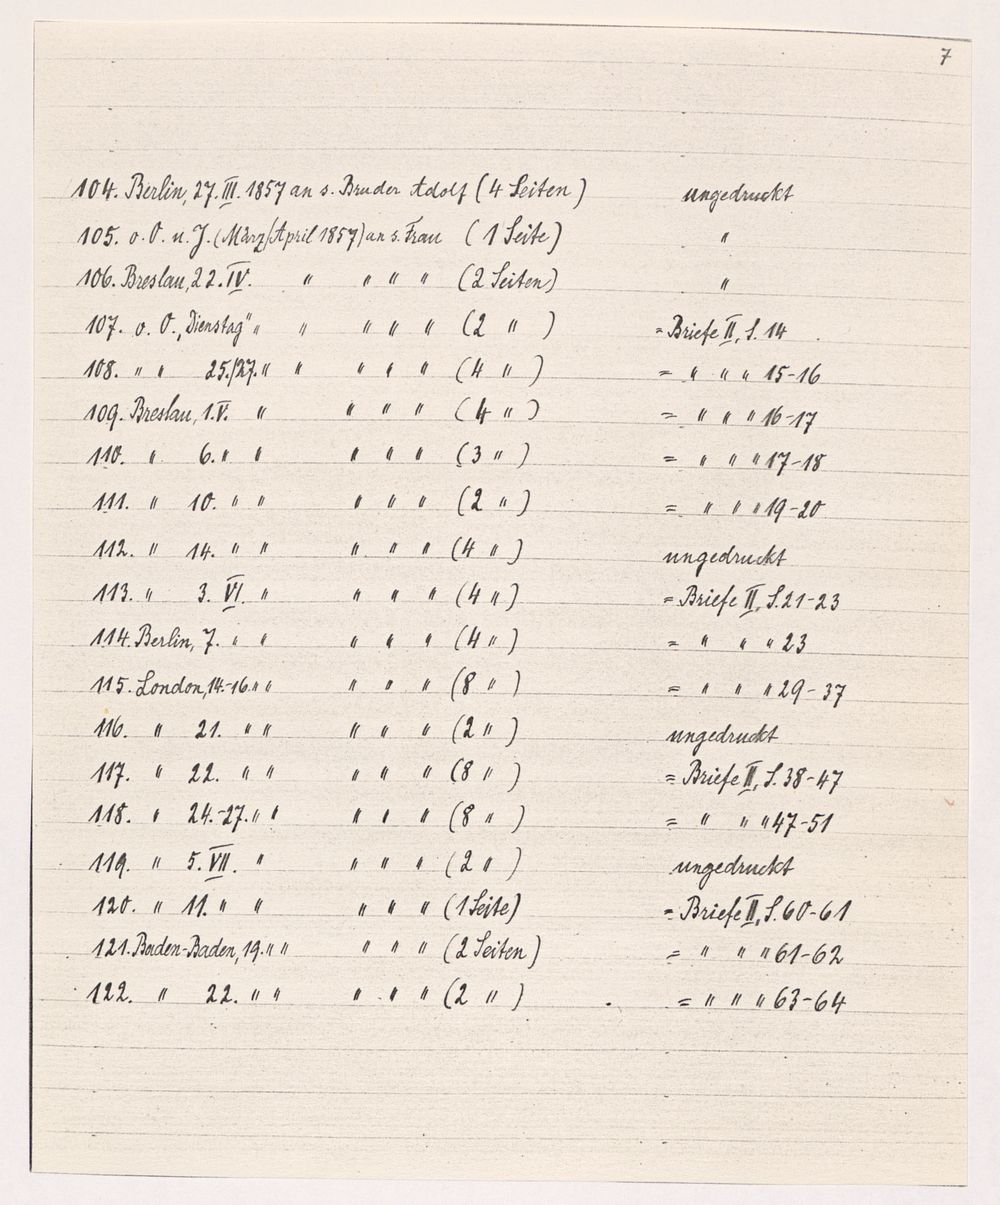 7
104. Berlin, 27. III. 1857 an s. Bruder Adolf (4 Seiten) ungedruckt
105. o. O. u. J. (März/April 1857) an s. Frau (1 Seite) "
106. Breslau, 22. IV. " " " " (2 Seiten) "
107. o. O. „Dienstag" " " " " " (2 " ) = Briefe II, S. 14
108. " " 25./27. " " " " " (4 " ) = " " " 15-16
109. Breslau, 1. V. " " " " (4 " ) = " " " 16-17
110. " 6. " " " " " (3 " ) = " " " 17-18
111. " 10. " " " " " (2 " ) = " " " 19-20
112. " 14. " " " " " (4 " ) ungedruckt
113. " 3. VI. " " " " (4 " ) = Briefe II, S. 21-23
114. Berlin, 7. " " " " " (4 " ) = " " " 23
115. London, 14.-16. " " " " " (8 " ) = " " " 29-37
116. " 21. " " " " " (2 " ) ungedruckt
117. " 22. " " " " " (8 " ) = Briefe II, S. 38-47
118. " 24.-27. " " " " " (8 " ) = " " " 47-51
119. " 5. VII. " " " " (2 " ) ungedruckt
120. " 11. " " " " " (1 Seite) = Briefe II, S. 60-61
121. Baden-Baden, 19. " " " " " (2 Seiten) = " " " 61-62
122. " 22. " " " " " (2 " ) = " " " 63-64